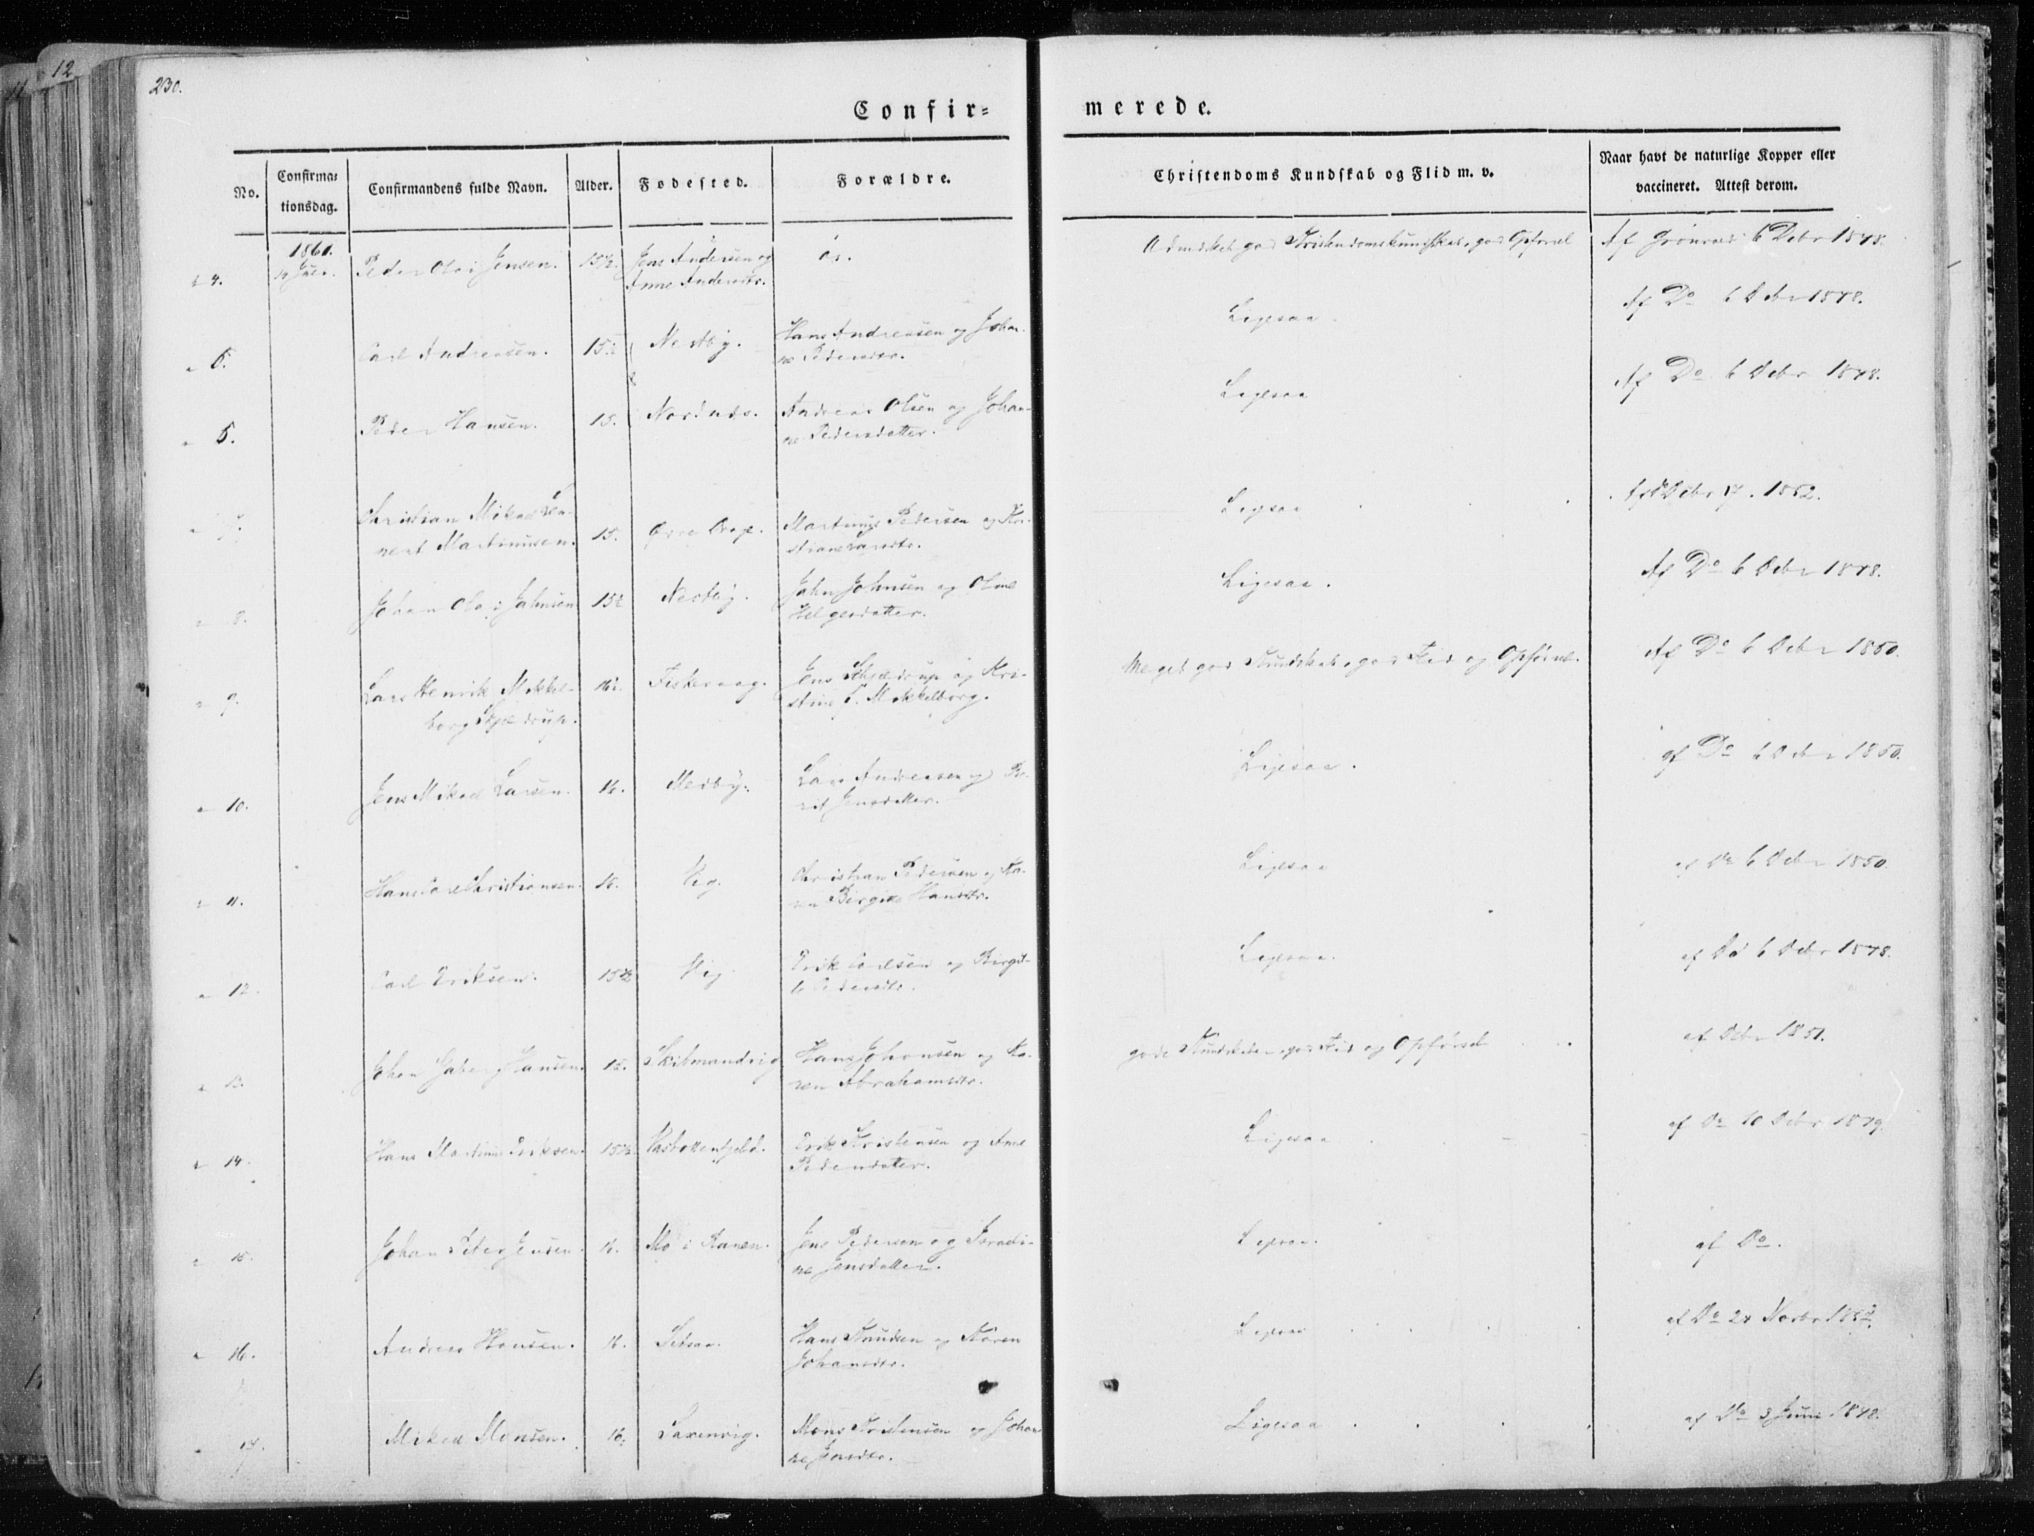 12
230.
Confir=
merede.
No.
Confirma=
tionsdag.
Confirmandens fulde Navn.
Alder.
Fødested.
Forældre.
Christendoms Kundskab og Flid m. v.
Naar havt de naturlige Kopper eller
vaccineret. Attest derom.
1861.
4. Peder Olai Jensen. 15½ Jens Andersen og
Anne Andersdtr.
god Kristendomskundskab, god Opførsel Af 6 Debr 1848.
6. Carl Andreasen. 15½ Nestby. Hans Andreasen og Johan-
ne Pedersdtr.
Ligesaa. Af Do 6 Debr 1848.
5. Peder Hansen. 15. Nordnæs. Andreas Olsen og Johan-
ne Pedersdatter.
Ligesaa Af Do 6 Debr 1848.
7. Christian Mikael
Martinusen. 15. Martinus Pedersen og
Ligesaa Debr 1852.
8. Johan Olai Johnsen 15½ Nestby. John Johnsen og Oline
Helgesdatter.
Ligesaa. Af Do 6 Debr 1848.
9. Lars Henrik Mikkel-
borg Skjedrup. 16½ Fiskevaag. Jens Skjedrup og Kri-
stine Mikkelborg.
Meget god Kundskab, god Flid og Opførsel. Af Do 6 Debr 1850.
10. Jens Mikael Larsen. 16. Medby. Lars Andreasen og Be-
rit Jensdatter.
Ligesaa. af Do 6 Debr 1850.
11. Hans Carl Christiansen. 16. Vig. Christian Pedersen og Ka-
ren Birgitte Hansdtr.
Ligesaa af Do 6 Debr 1850.
12. Carl Eriksen. 15½ Vig Erik Carlsen og Birgit-
te Pedersdtr.
Ligesaa. af Do 6 Debr 1848.
13. Johan Jaber Hansen. 15. Skibmandvig Hans Johansen og Ka-
ren Abrahamsdtr.
god Kundskab, god Flid og Opførsel af Debr 1851.
14. Hans Martinus Eriksen. 15½ Erik Kristensen og Ane
Pedersdatter.
Ligesaa af Do 10 Debr 1849.
15. Johan Peter Jensen. 16. Mo i Ranen. Jens Pedersen og
Jensdatter.
Ligesaa. af Do.
16. Andreas Hansen. 16. Setsaa. Hans Knudsen og Karen
Johansdtr.
Ligesaa af Do 24 Novbr
17. Mikael Monsen. 16. Saxenvig. Mons Kristensen og Johan-
ne Jensdtr.
Ligesaa af Do 3 Juni 1848.